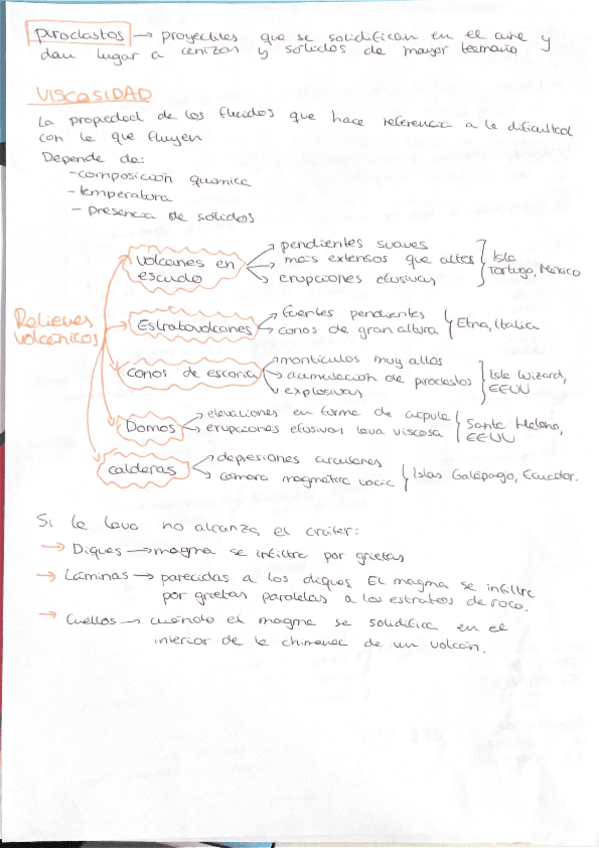 piroclastos → proyectiles que se solidifican en el aire y
dan lugar a cenizas y solidos de mayor tamaño
VISCOSIDAD
La propiedad de los fluidos que hace referencia a la dificultad
con la que fluyen
Depende de:
- composición quimica
- temperatura
- presencia de solidos
Relieves
volcánicos
volcanes en
escudo
→ pendientes suaves
→ mas extensos que altos
→ erupciones efusivas
Isla
Tortuga, México
Estratovolcanes
→ fuertes pendientes
→ conos de gran altura
Etna, Italia
conos de escoria
→ monticulos muy altos
→ acumulación de piroclastos
→ explosivas
Isla Wizard,
EEUU
Domos
→ elevaciones en forma de cúpula
→ erupciones efusivas lava viscosa
Santa Helena,
EEUU
calderas
→ depresiones circulares
→ cámara magmática vacía
Islas Galápago, Ecuador.
Si la lava no alcanza el cráter:
→ Diques → magma se infiltra por grietas
→ Láminas → parecidas a los diques El magma se infiltra
por grietas paralelas a los estratos de roca.
→ Cuellos → cuando el magma se solidifica en el
interior de la chimenea de un volcán.